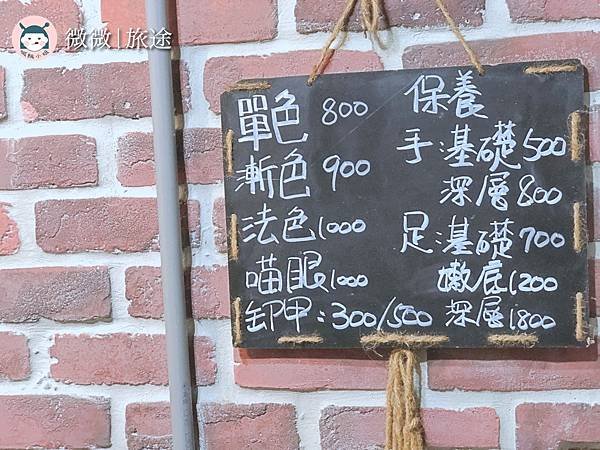 微微|旅途
單色 800
漸色 900
法色 1000
喵眼 1000
卸甲:300/500
保養
手:基礎 500
深層 800
足:基礎 700
嫩底 1200
深層 1800